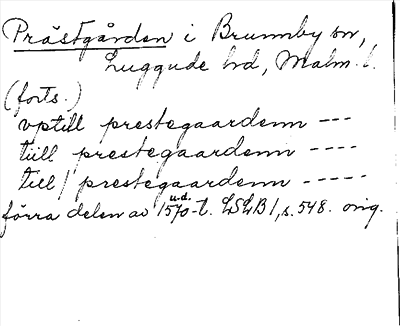 Prästgården i Brunnby sn,
Luggude hd, Malm. l.
(forts.)
vptill prestegaardenn ---
tiill prestegaardenn ----
till / prestegaardenn -----
u.d.
förra delen av 1570-t. LSLB 1, s. 548. orig.